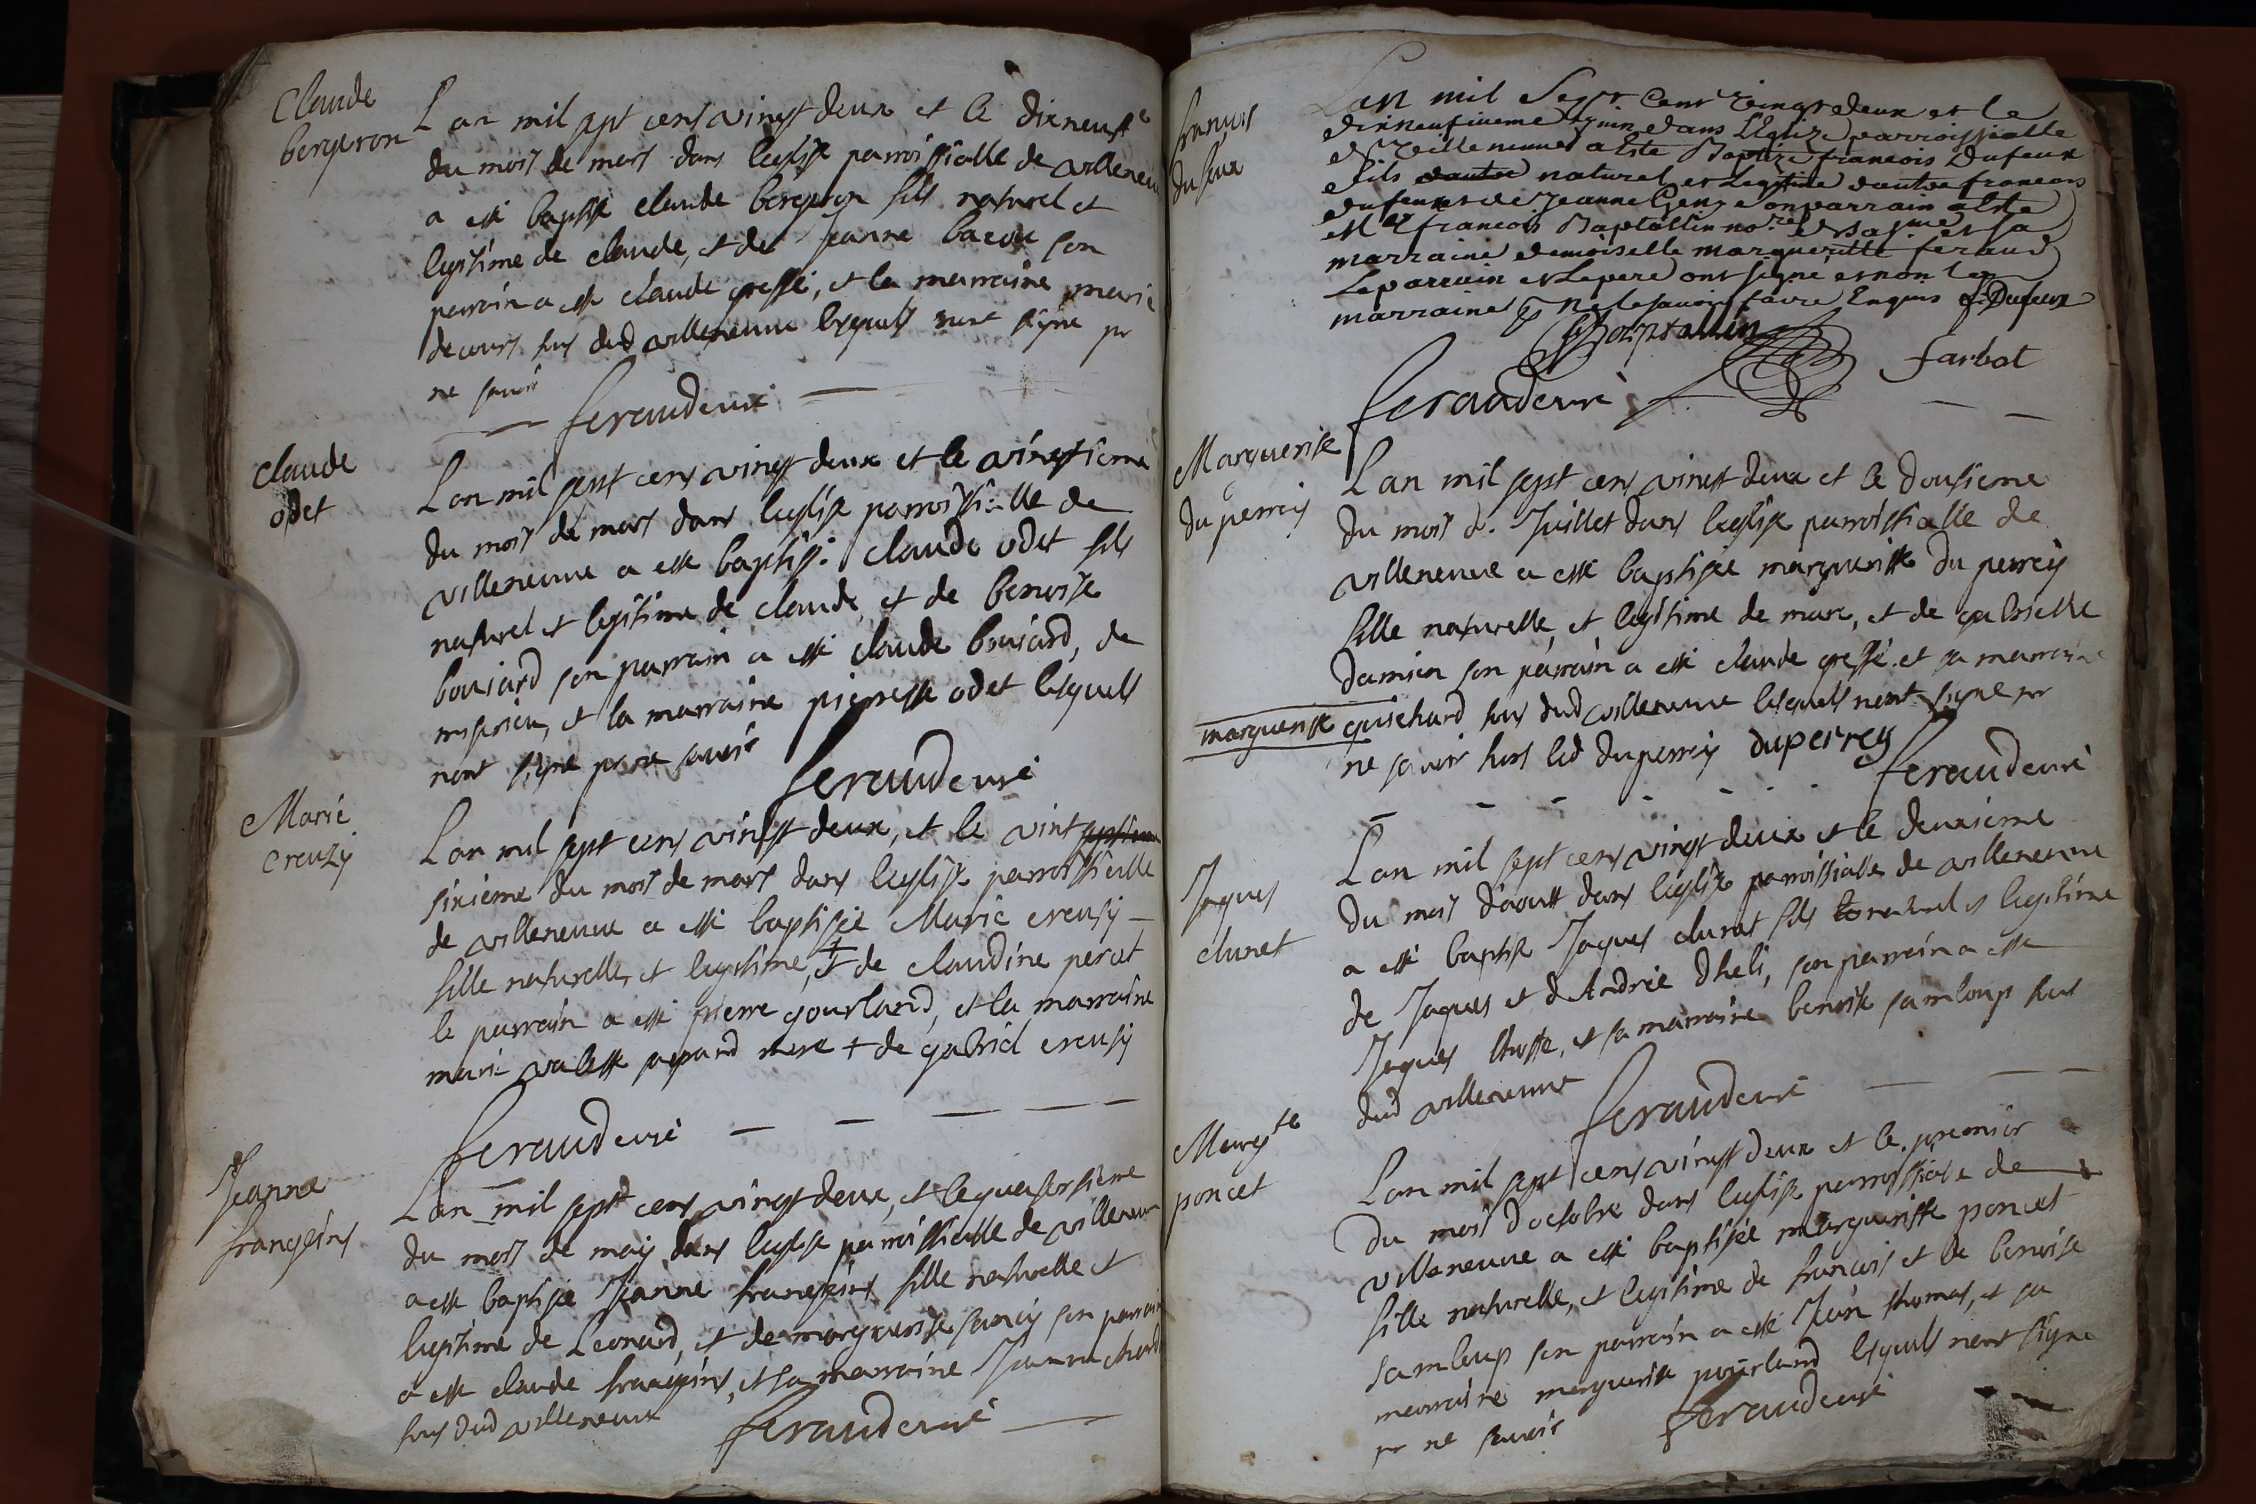 Claude
bergeron
Lan mil sept cens vingt deux et le dixneufe
du mois de mars dans leglise parroissialle de villeneuv
a esté baptisé claude bergeron fils naturel et
legitime de claude, et de jeanne bacou son
parrain a esté claude gressé, et la marraine marie
decours tous dud villeneuve lesquels nont signé pr
ne savoir
feraud curé
claude
odet
Lan mil sept cens vingt deux et le vingtieme
du mois de mars dans leglise parroissialle de
villeneuve a esté baptisé claude odet fils
naturel et legitime de claude et de benoise
boujard son parrain a esté claude boujard, de
misirieu, et la marraine pierresse odet lesquels
nont signé pr ne savoir
feraud curé
Marie
creuzy
Lan mil sept cens vingt deux, et le vint septieme
sixieme du mois de mars dans leglise parroissialle
de villeneuve a esté baptisée Marie creusy
fille naturelle, et legitime, + et de claudine percet
le parrain a esté pierre gourland, et la marraine
marie valesse + de gabriel creusy
feraud curé
Jeanne
frangeins
Lan mil sept cens vingt deux, et le quatorsieme
du mois de may dans leglise parroissialle de villeneuv
a esté baptisée Jeanne frangeins fille naturelle et
legitime de Leonard, et de marguerite son parrain
a esté claude frangeins, et sa marraine Jeanne
tous dud villeneuve
feraud curé
francois
dufeux
Lan mil Sept Cent vingt deux et le
dixneufiueme Juin dans L'Eglize parroissialle
de Veilleneuve a Este Baptize francois Dufeux
fils dautre naturel et Legitime dautre francois
dufeux et de Jeanne Genge son parrain a Este
Mr francois Baptallin nore et sa
marraine demoiselle margueritte feraud
Le parrain et Le pere ont signé et non La
marraine p Ne le savoir faire Enquis f. Dufeux
Baptallin
farbot
feraud curé
Marguerite
du perrey
Lan mil sept cens vingt deux et le dousieme
du mois de Juillet dans leglise parroissialle de
villeneuve a esté baptisée marguerite du perrey
fille naturelle, et legitime de marc, et de gabrielle
damien son parrain a esté claude gressé et sa marraine
marguerite guichard tous dud villeneuve lesquels nont signé pr
ne savoir hors led duperrey duperrey
feraud curé
Jaques
clunet
Lan mil sept cens vingt deux et le deuxieme
du mois d'aoust dans leglise parroissialle de villeneuve
a esté baptisé Jaques clunet fils naturel et legitime
de Jaques et d'Andrée dheli, son parrain a esté
Jaques, et sa marraine benoise samloup tous
dud villeneuve
feraud curé
Margte
poncet
Lan mil sept cens vingt deux et le premier
du mois doctobre dans leglise parroissiale de
villeneuve a esté baptisée marguerite poncet
fille naturelle, et legitime de francois et de benoise
samloup son parrain a esté Jean thomas, et sa
marraine marguerite pourland lesquels nont signé
pr ne savoir
feraud curé